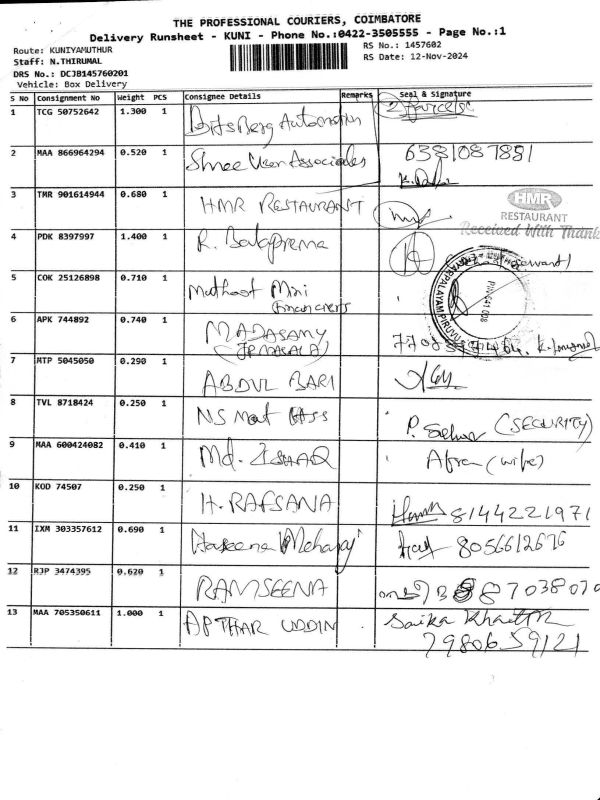 THE PROFESSIONAL COURIERS, COIMBATORE
Delivery Runsheet - KUNI - Phone No.:0422-3505555 - Page No.:1
Route: KUNIYAMUTHUR RS No.: 1457602
Staff: N.THIRUMAL RS Date: 12-Nov-2024
DRS No.: DCJB145760201
Vehicle: Box Delivery
S No Consignment No Weight PCS Consignee Details Remarks Seal & Signature
1 TCG 50752642 1.300 1
2 MAA 866964294 0.520 1 Shree Associates 6381087881
3 TMR 901614944 0.680 1 HMR RESTAURANT
HMR
RESTAURANT
Received With Thank
4 PDK 8397997 1.400 1 R. Balaprema
5 COK 25126898 0.710 1 Muthoot Mini
Financiers
6 APK 744892 0.740 1 MADASAMY
7 MTP 5045050 0.290 1 ABDUL BARI
8 TVL 8718424 0.250 1 NS Mat P. Selva (SECURITY)
9 MAA 600424082 0.410 1 Md. ISHAAQ (wife)
10 KOD 74507 0.250 1 H. RAFSANA 8144221971
11 IXM 303357612 0.690 1 Haseena 8056612676
12 RJP 3474395 0.620 1 RAMSEENA
13 MAA 705350611 1.000 1 APTHAR UDDIN Saika Khatun
7980659121